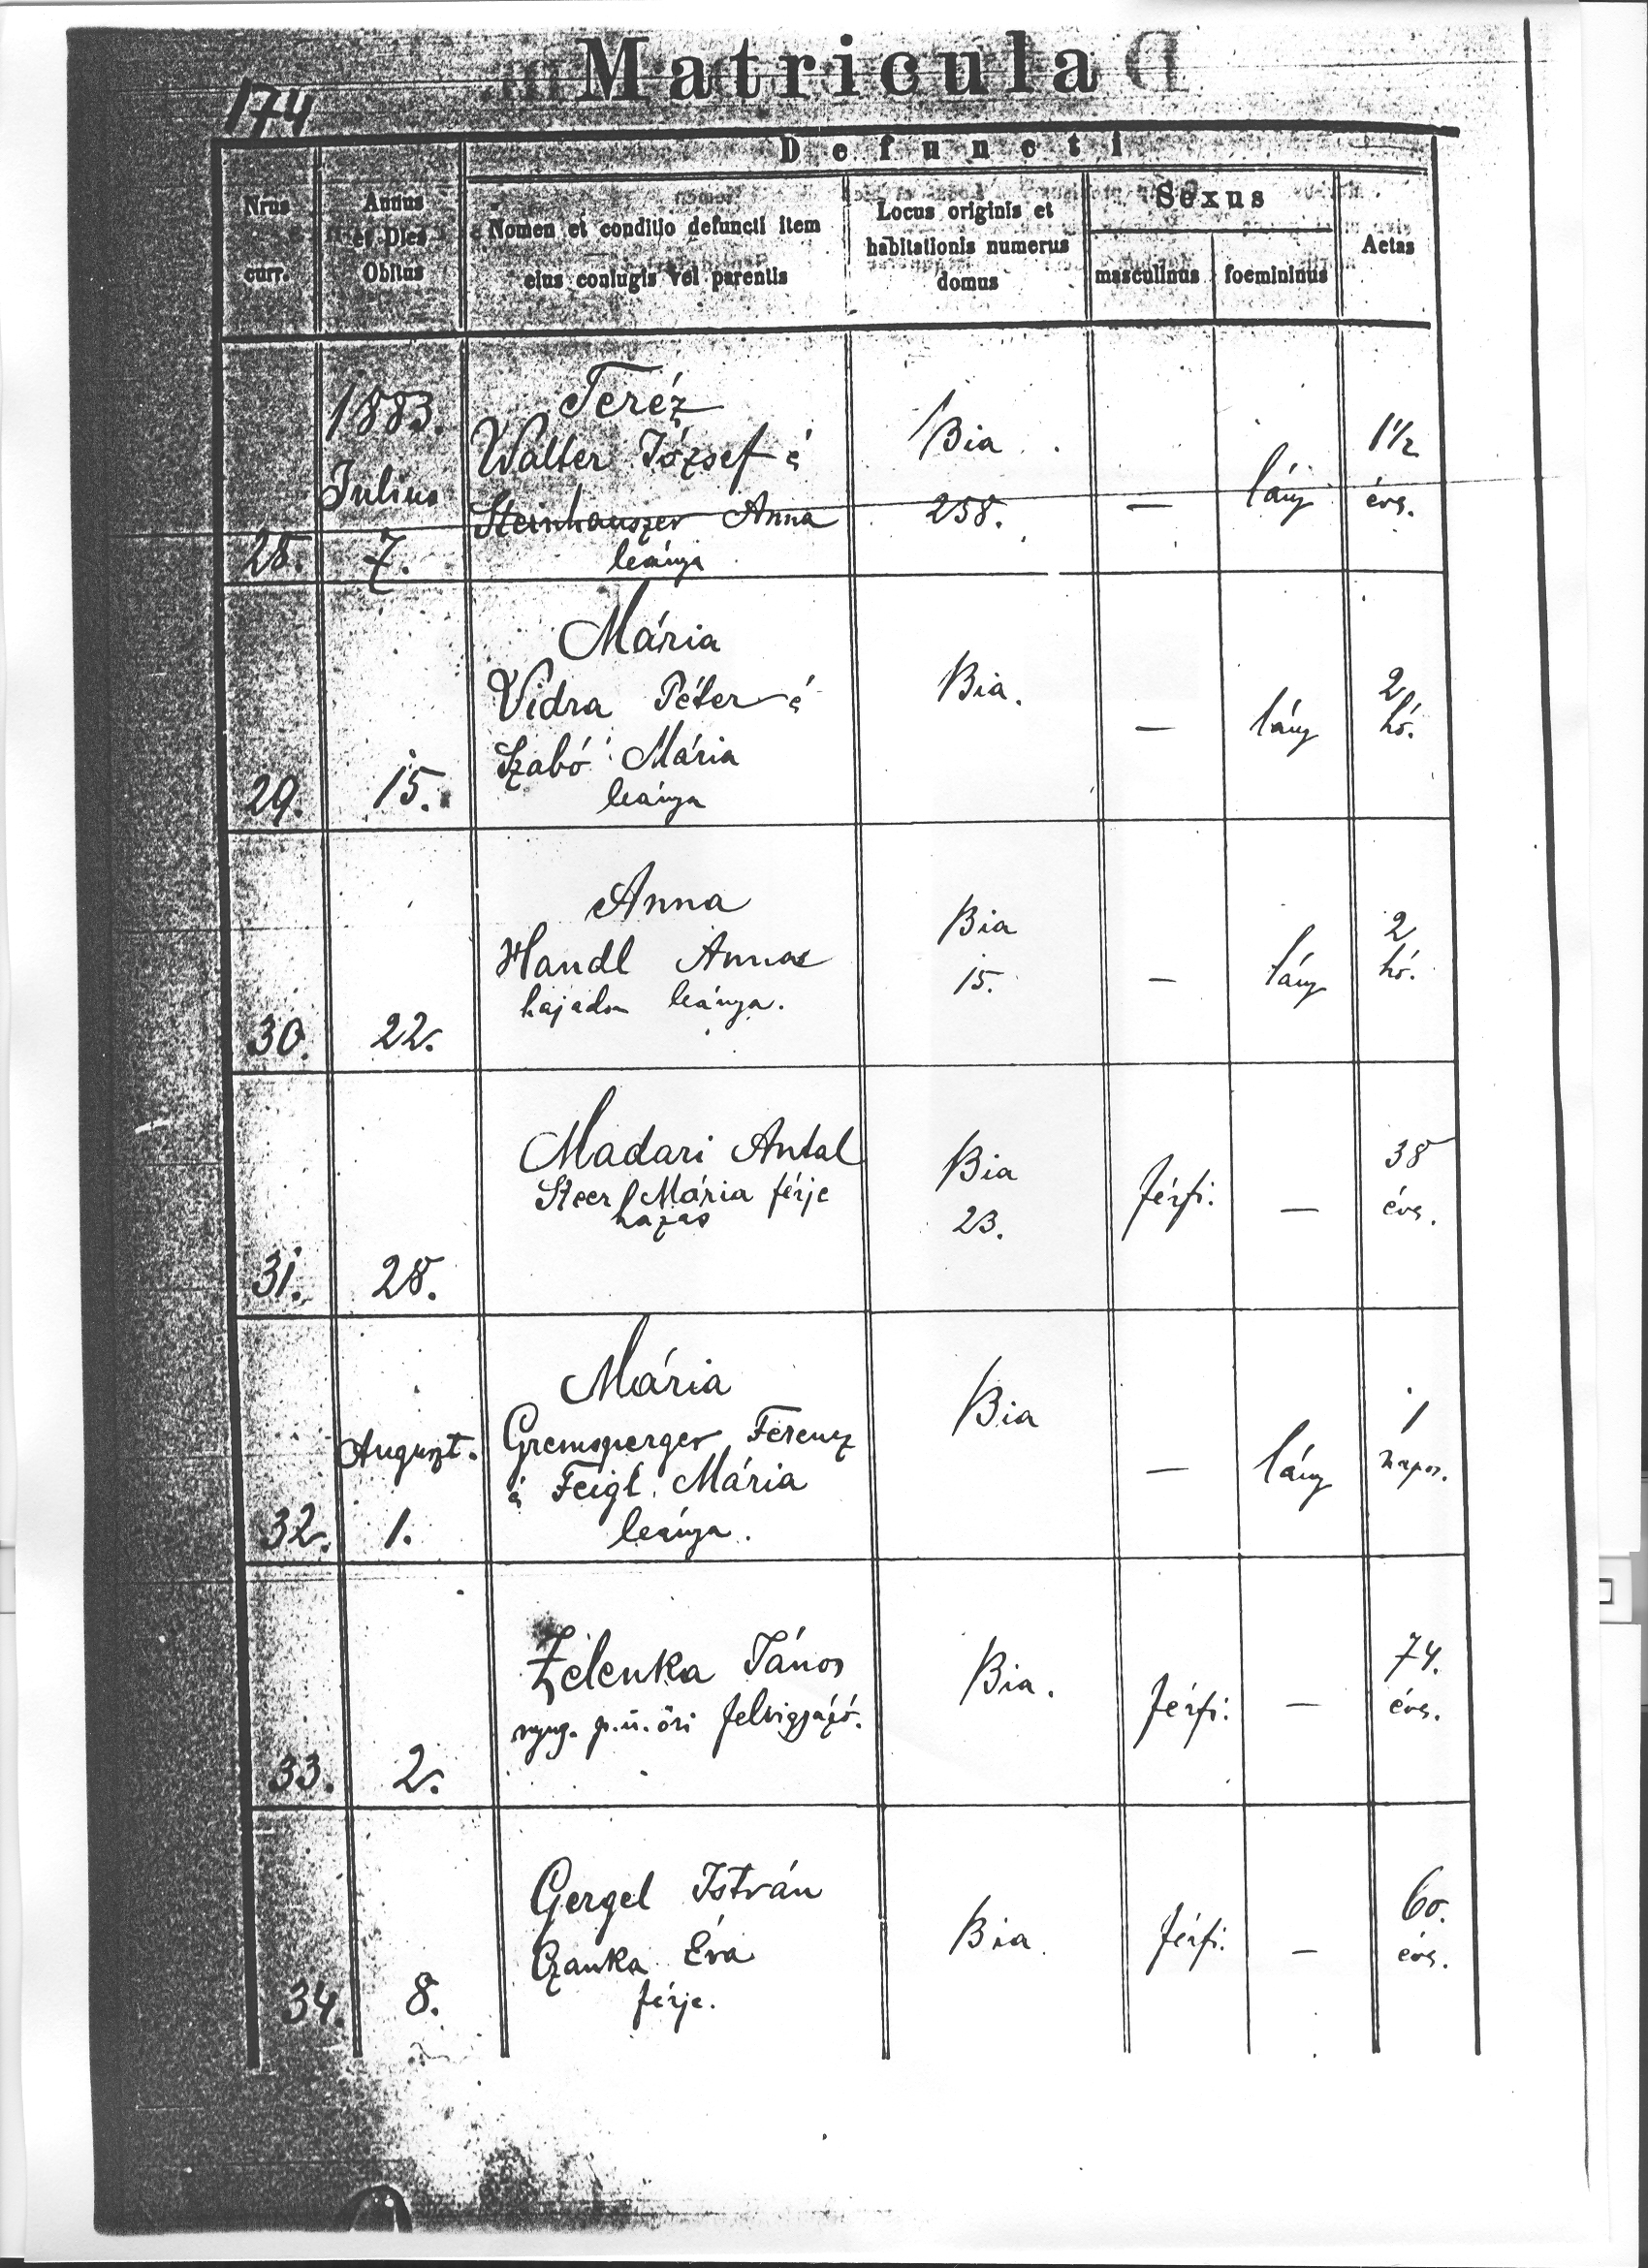 Matricula
174
Defuncti
Nrus
curr.
Annus
et Dies
Obitus
Nomen et conditio defuncti item
eius coniugis vel parentis
Locus originis et
habitationis numerus
domus
Sexus
masculinus
foemininus
Aetas
28.
1883.
Julius
7.
Teréz
Walter József é
Steinhauszer Anna
leánya
Bia
258.
—
lány
1 1/2
évs.
29.
15.
Mária
Vidra Péter é
Szabó Mária
leánya
Bia.
—
lány
2
hó.
30.
22.
Anna
Handl Anna
hajadon leánya.
Bia
15.
—
lány
2
hó.
31.
28.
Madari Antal
Steerl Mária férje
házas
Bia
23.
férfi.
—
38
évs.
32.
Auguszt.
1.
Mária
Gremsperger Ferencz
é Feigl Mária
leánya.
Bia
—
lány
1
napos.
33.
2.
Zelenka János
nyug. p.ü. őri felvigyázó.
Bia.
férfi.
—
74.
évs.
34.
8.
Gergel István
Czanka Éva
férje.
Bia.
férfi.
—
60.
évs.